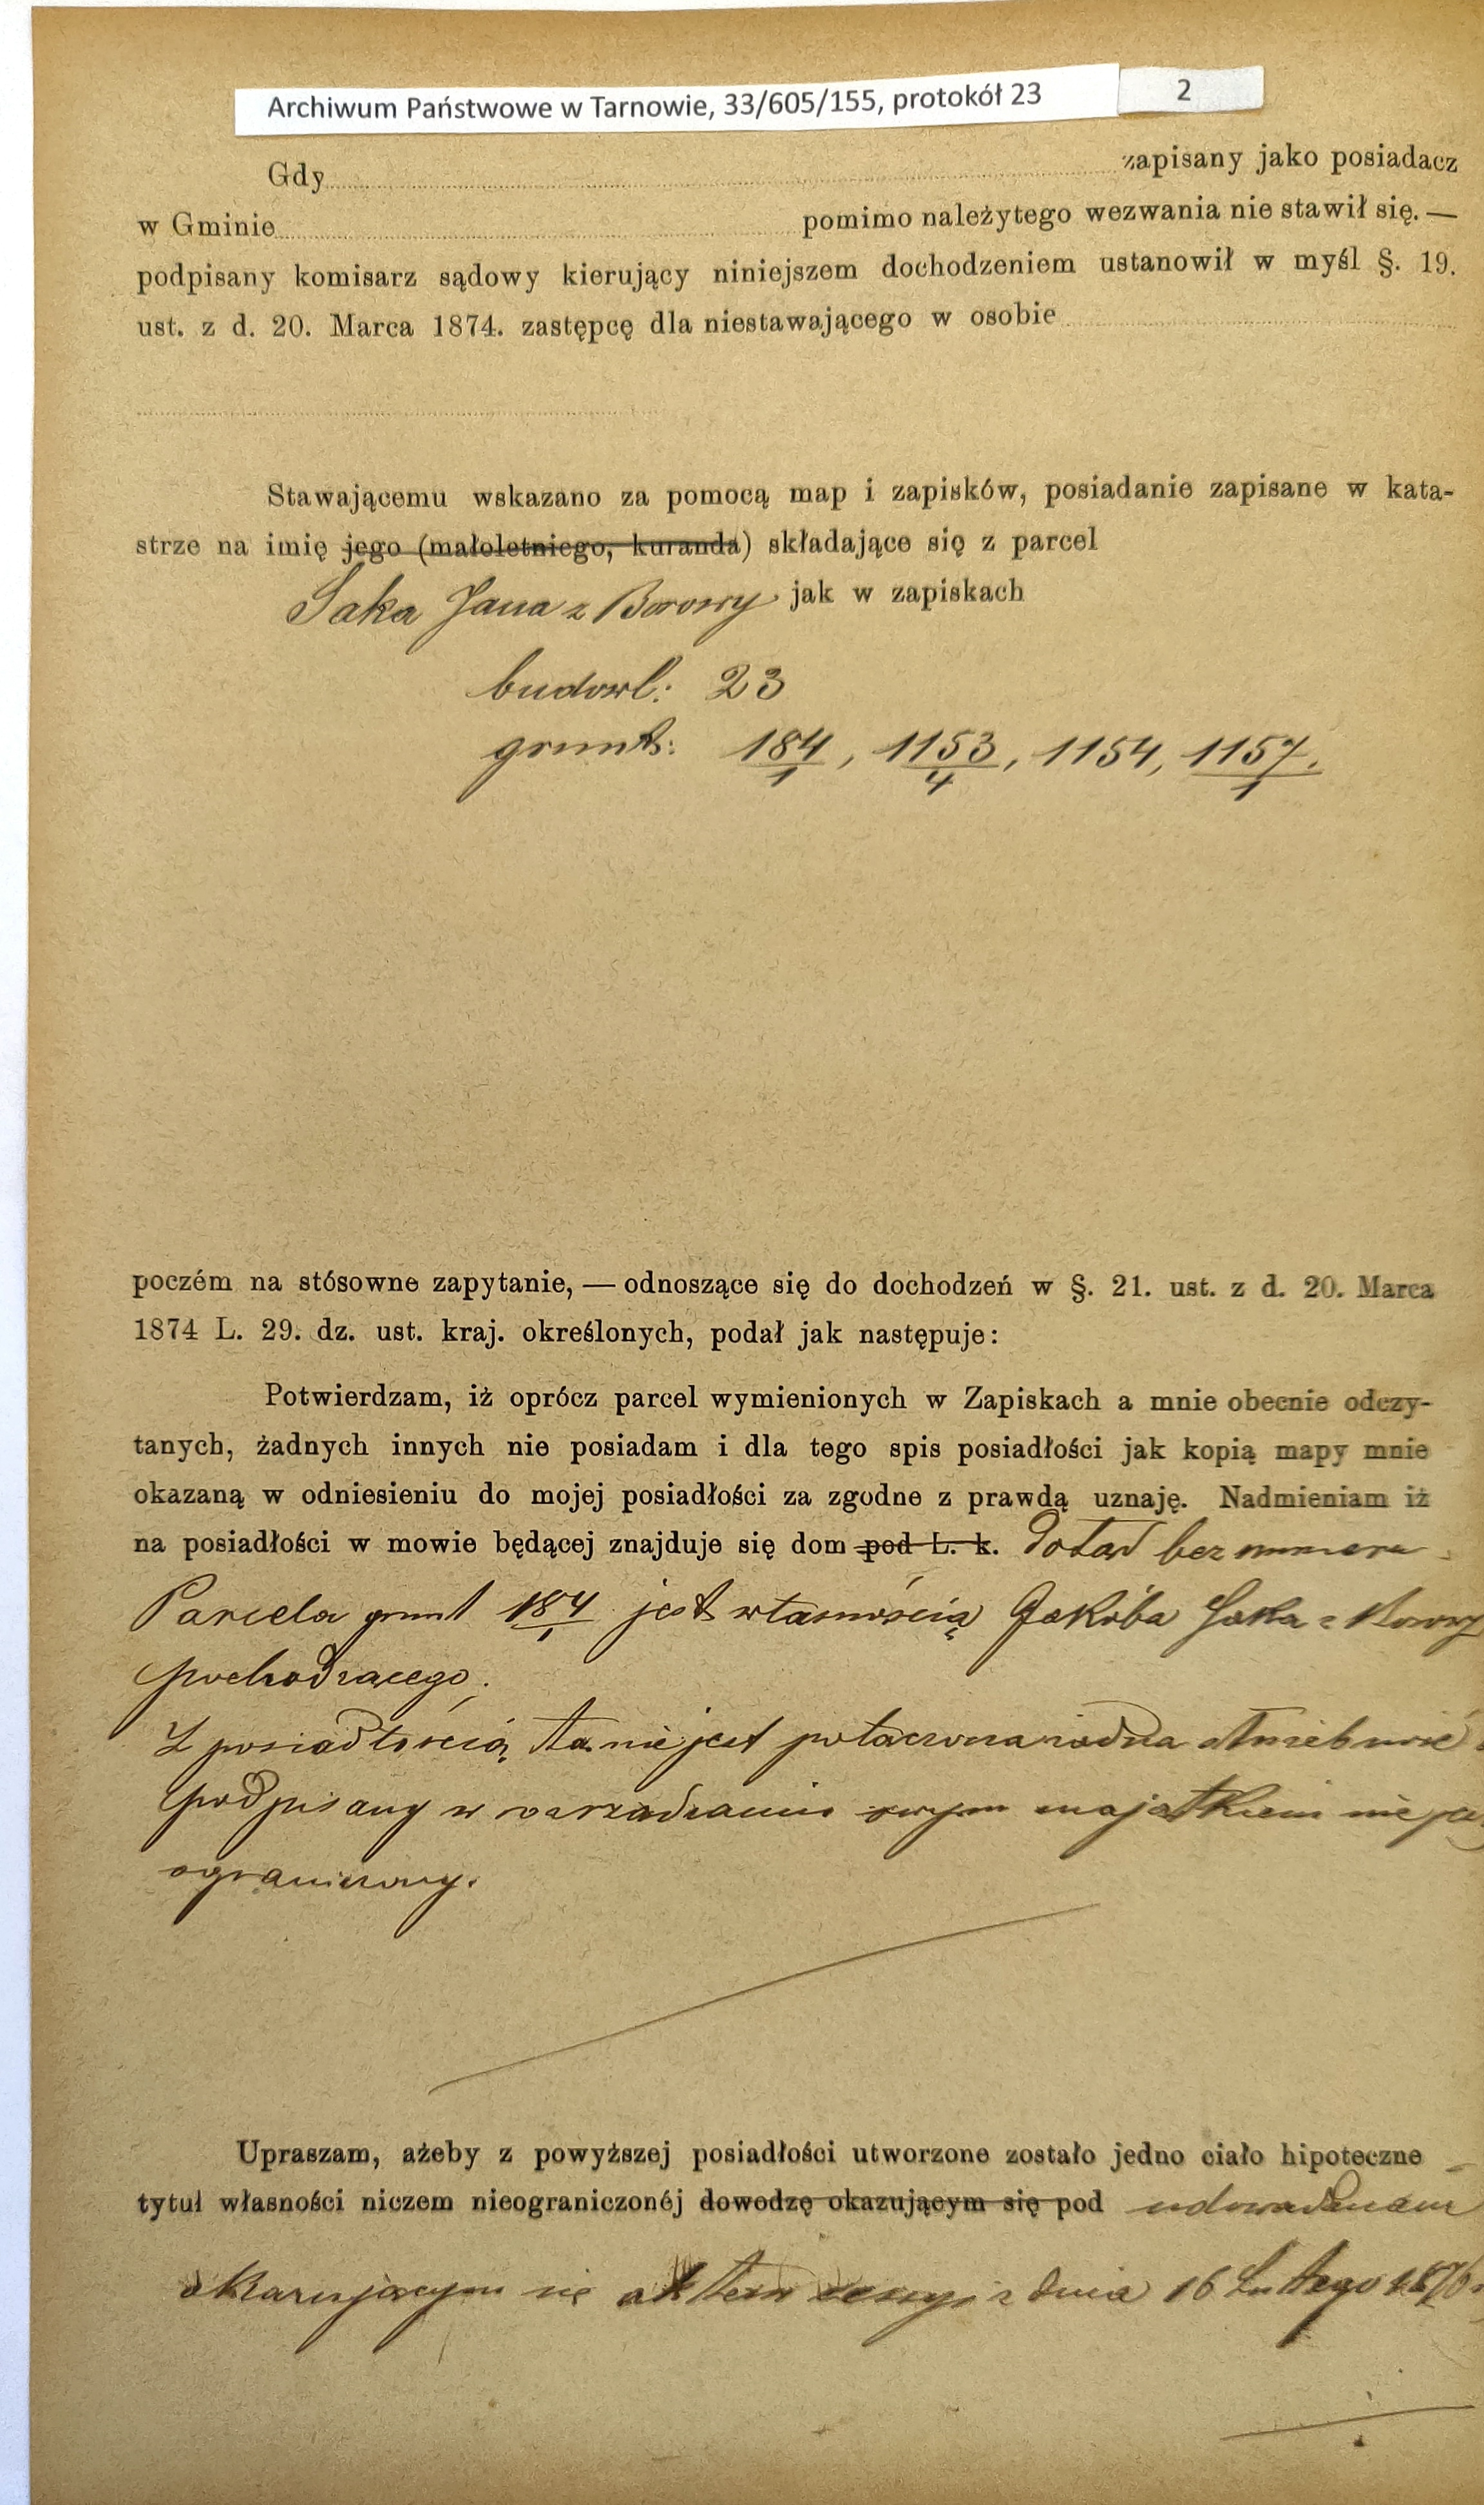 Archiwum Państwowe w Tarnowie, 33/605/155, protokół 23
2
Gdy zapisany jako posiadacz
w Gminie pomimo należytego wezwania nie stawił się. —
podpisany komisarz sądowy kierujący niniejszem dochodzeniem ustanowił w myśl §. 19.
ust. z d. 20. Marca 1874. zastępcę dla niestawającego w osobie
Stawającemu wskazano za pomocą map i zapisków, posiadanie zapisane w kata-
strze na imię jego (małoletniego, kuranda) składające się z parcel
Saka Jana z Borowy jak w zapiskach
budowl: 23
grunt: 184/1, 1153/4, 1154, 1157/1.
poczém na stósowne zapytanie, — odnoszące się do dochodzeń w §. 21. ust. z d. 20. Marca
1874 L. 29. dz. ust. kraj. określonych, podał jak następuje:
Potwierdzam, iż oprócz parcel wymienionych w Zapiskach a mnie obecnie odczy-
tanych, żadnych innych nie posiadam i dla tego spis posiadłości jak kopią mapy mnie
okazaną w odniesieniu do mojej posiadłości za zgodne z prawdą uznaję. Nadmieniam iż
na posiadłości w mowie będącej znajduje się dom pod L. k. dotąd bez numeru.
Parcela grunt 184/1 jest własnością Jakóba Saka z Borowy
pochodzącego.
Z posiadłością ta nie jest połączona żadna służebność
podpisany w zarządzaniu swym majątkiem nie jest
ograniczony.
Upraszam, ażeby z powyższej posiadłości utworzone zostało jedno ciało hipoteczne
tytuł własności niczem nieograniczonéj dowodzę okazującym się pod udowadniam
okazującym się aktem cesyi z dnia 16 Lutego 1876